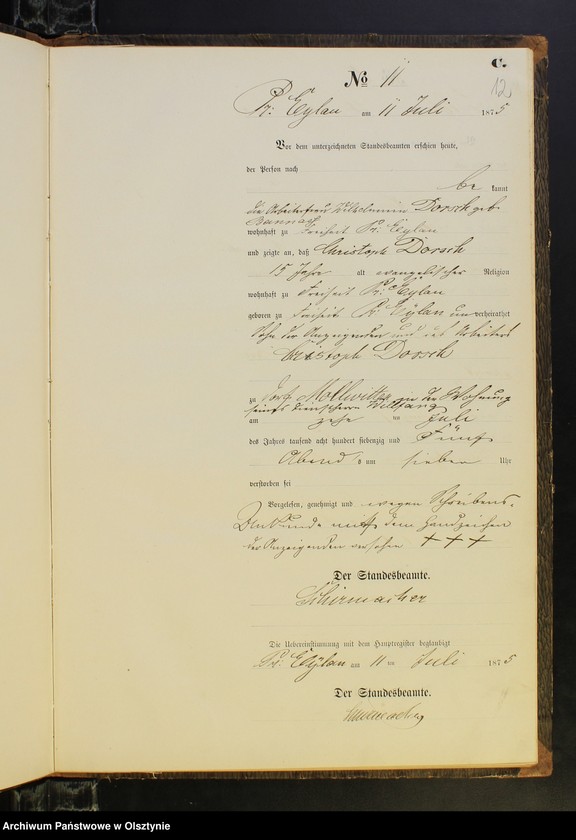 C.
No 11
12
Pr: Eylau am 11 Juli 1875
Vor dem unterzeichneten Standesbeamten erschien heute,
der Person nach
be kannt
die Arbeiterfrau Wilhelmine Dorsch geb.
wohnhaft zu Freiheit Pr: Eylau
und zeigte an, daß Christoph Dorsch
15 Jahr alt evangelischer Religion
wohnhaft zu Freiheit Pr: Eylau
geboren zu Freiheit Pr: Eylau unverheirathet
Sohn der Anzeigenden und des Arbeiters
Christoph Dorsch
zu Dorf Mollwitten in der Wohnung
seines Dienstherrn
am Juli
des Jahres tausend acht hundert siebenzig und Fünf
Abend s um sieben Uhr
verstorben sei
Vorgelesen, genehmigt und wegen Schreibens-
Unkunde mit dem Handzeichen
der Anzeigenden versehen + + +
Der Standesbeamte.
Schirmacher
Die Uebereinstimmung mit dem Hauptregister beglaubigt
Pr: Eylau am 11 ten Juli 1875
Der Standesbeamte.
Archiwum Państwowe w Olsztynie